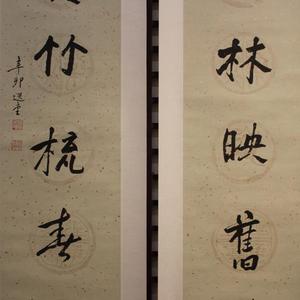 林映舊
竹梳春
辛卯選堂